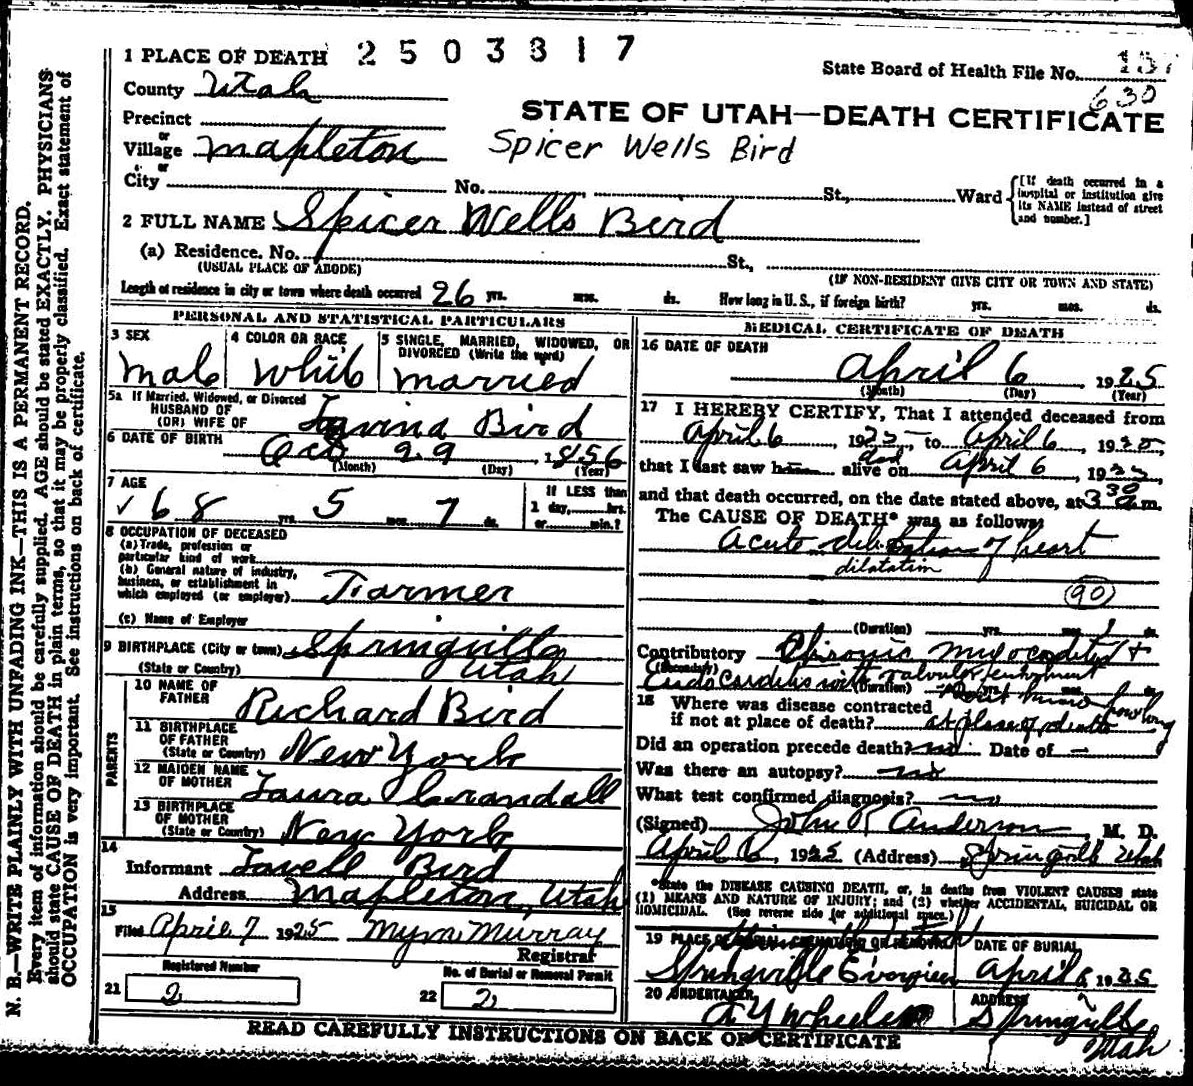 1 PLACE OF DEATH 2503817
State Board of Health File No. 157
630
County Utah
STATE OF UTAH—DEATH CERTIFICATE
Precinct
or
Village Mapleton
Spicer Wells Bird
or
City No. St., Ward
[If death occurred in a hospital or institution give its NAME instead of street and number.]
2 FULL NAME Spicer Wells Bird
(a) Residence. No. St.,
(USUAL PLACE OF ABODE) (IF NON-RESIDENT GIVE CITY OR TOWN AND STATE)
Length of residence in city or town where death occurred 26 yrs. mos. ds. How long in U. S., if foreign birth? yrs. mos. ds.
PERSONAL AND STATISTICAL PARTICULARS
3 SEX
Male
4 COLOR OR RACE
White
5 SINGLE, MARRIED, WIDOWED, OR
DIVORCED (Write the word)
Married
5a If Married, Widowed, or Divorced
HUSBAND OF
(OR) WIFE OF Lavina Bird
6 DATE OF BIRTH
Oct 29, 1856
(Month) (Day) (Year)
7 AGE
68 yrs. 5 mos. 7 ds.
If LESS than
1 day, hrs.
or min.?
8 OCCUPATION OF DECEASED
(a) Trade, profession or
particular kind of work
(b) General nature of industry,
business, or establishment in
which employed (or employer) Farmer
(c) Name of Employer
9 BIRTHPLACE (City or town) Springville
(State or Country) Utah
PARENTS
10 NAME OF
FATHER Richard Bird
11 BIRTHPLACE
OF FATHER
(State or Country) New York
12 MAIDEN NAME
OF MOTHER Laura Crandall
13 BIRTHPLACE
OF MOTHER
(State or Country) New York
14
Informant Lovell Bird
Address Mapleton, Utah
15
Filed April 7 1925 Myrn Murray
Registrar
Registered Number
21 2
No. of Burial or Removal Permit
22 2
MEDICAL CERTIFICATE OF DEATH
16 DATE OF DEATH
April 6, 1925
(Month) (Day) (Year)
17 I HEREBY CERTIFY, That I attended deceased from
April 6, 1925 to April 6, 1925
that I last saw h alive on April 6, 1925
dead
and that death occurred, on the date stated above, at 3 30 a m.
The CAUSE OF DEATH* was as follows:
Acute dilatation of heart
dilatation
90
(Duration) yrs. mos. 1 ds.
Contributory Chronic myocarditis +
(Secondary)
Endocarditis with valvular
(Duration) yrs. don't know how long
18 Where was disease contracted
if not at place of death? at place of death
Did an operation precede death? no Date of —
Was there an autopsy? no
What test confirmed diagnosis? no
(Signed) John R Anderson, M. D.
April 6, 1925 (Address) Springville Utah
*State the DISEASE CAUSING DEATH, or, in deaths from VIOLENT CAUSES state
(1) MEANS AND NATURE OF INJURY; and (2) whether ACCIDENTAL, SUICIDAL OR
HOMICIDAL. (See reverse side for additional space.)
19 PLACE OF BURIAL, CREMATION OR REMOVAL
Springville Evergreen
DATE OF BURIAL
April 8 1925
20 UNDERTAKER
A Y Wheeler
ADDRESS
Springville
Utah
READ CAREFULLY INSTRUCTIONS ON BACK OF CERTIFICATE
N. B.—WRITE PLAINLY WITH UNFADING INK—THIS IS A PERMANENT RECORD.
Every item of information should be carefully supplied. AGE should be stated EXACTLY. PHYSICIANS
should state CAUSE OF DEATH in plain terms, so that it may be properly classified. Exact statement of
OCCUPATION is very important. See instructions on back of certificate.